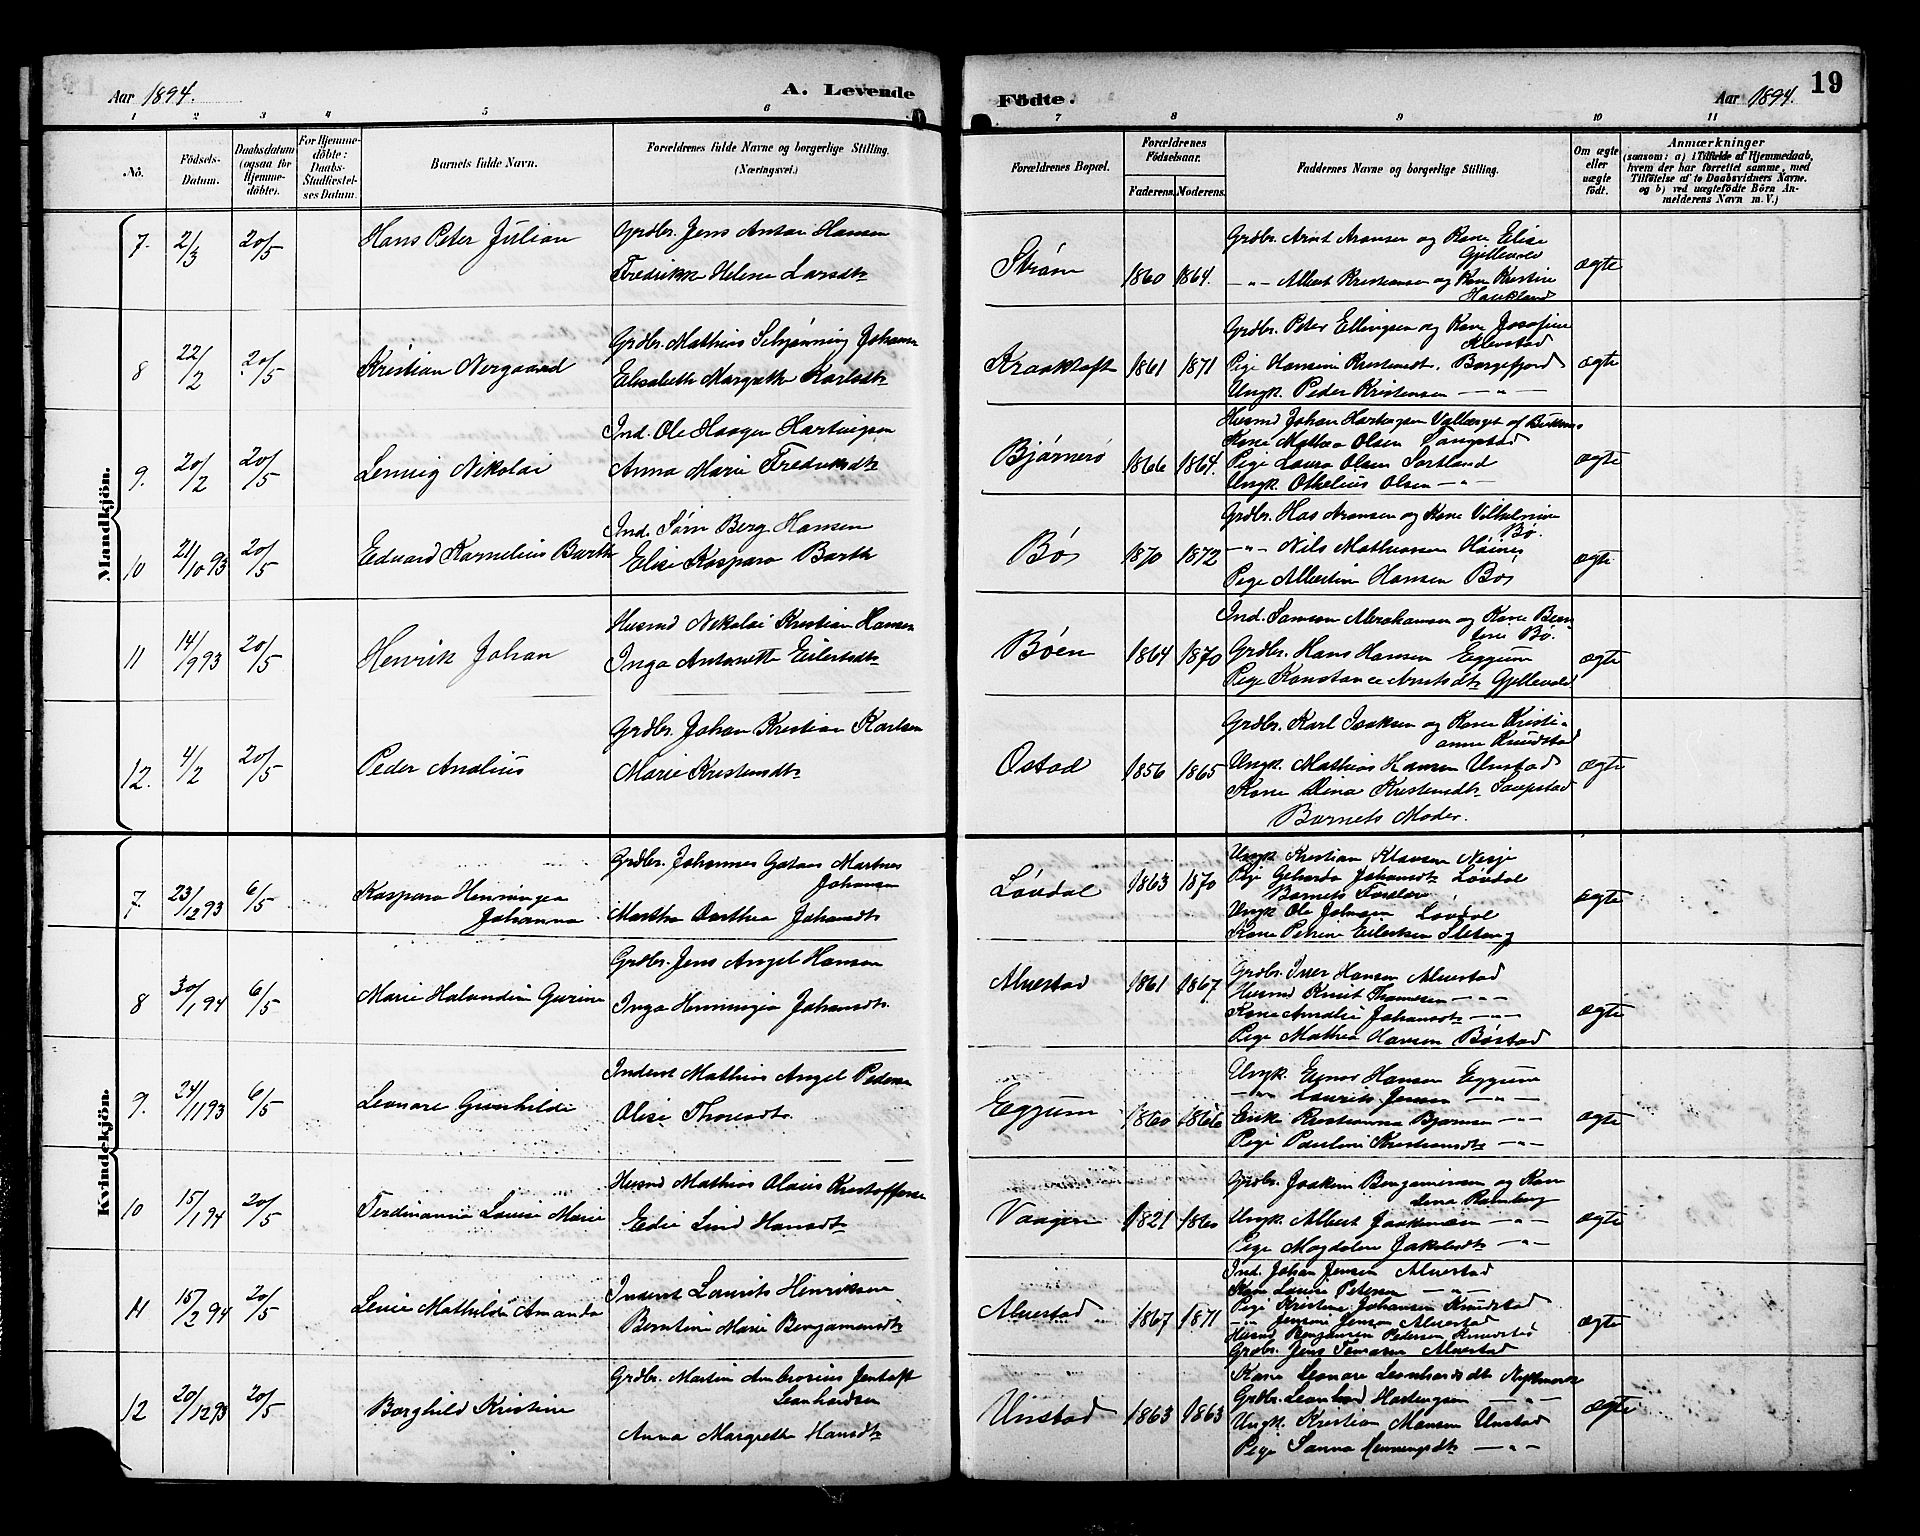 Aar 1894. A. Levende
Födte. Aar 1894. 19
1 2 3 4 5 6 7 8 9 10 11
No.
Födsels-
Datum.
Daabsdatum
(ogsaa for
Hjemme-
döbte).
For Hjemme-
döbte:
Daabs-
Stadfæstel-
ses Datum.
Barnets fulde Navn.
Forældrenes fulde Navne og borgerlige Stilling.
(Næringsvei.)
Forældrenes Bopæl.
Forældrenes
Födselsaar.
Faderens. Moderens.
Faddernes Navne og borgerlige Stilling.
Om ægte
eller
uægte
födt.
Anmærkninger
(saasom: a) i Tilfælde af Hjemmedaab,
hvem der har forrettet samme, med
Tilföielse af to Daabsvidners Navne.
og b) ved uægtefödte Börn An-
melderens Navn m. V.)
Mandkjön.
7. 2/3 20/5 Hans Peter Julian
Grdbr. Jens Anton Hansen
Fredrikke Helene Larsdtr
Strøm 1860 1864.
Grdbr. Arnt Aronsen og Kone Elise
Gjellevold
-"- Albert Kristiansen og Kone Kristine
Haukland
ægte
8 22/2 20/5 Kristian Nergaard
Grdbr. Mathias Schjønning Johansen
Elisabeth Margrethe Karlsdtr
1861 1871
Grdbr. Peter Ellingsen og Kone Josefine
Alvestad
Pige Hansine Kristensdt. Borgefjord
Ungk. Peder Kristensen -"-
ægte
9. 20/2 20/5 Nikolai
Ind. Ole Haagen Hartvigsen
Anna Marie Fredriksdtr
Bjørnerø 1866 1864.
Husmd Johan Hartvigsen
Kone Mathea Olsen
Pige Laura Olsen Sortland
Ungk. Othelius Olsen -"-
ægte
10 21/10 93 20/5 Eduard Kornelius Barth
Ind. Sørn Berg Hansen
Elise Kaspara Barth
Bø 1870 1872
Grdbr. Has Aronsen og Kone Vilhelmine
Bø.
-"- Nils Mathiassen
Pige Albertine Hansen Bø
ægte
11 14/9 93 20/5 Henrik Johan
Husmd Nikolai Kristian Hansen
Inga Antonette Eilertsdtr
Bøen 1864 1870
Ind. Samson Abrahamsen og Kone Ben-
tine Bø.
Grdbr. Hans Hansen Eggum
Pige Konstance Arntsdtr Gjellevold
ægte
12. 4/2 20/5 Peder Analius
Grdbr. Johan Kristian Karlsen
Marie Kristensdtr
Ostad 1856 1865
Grdbr. Karl Isaksen og Kone Kristi-
anne Knudstad
Ungk. Mathias Hansen Unstad
Kone Dina Kristensdtr Saupstad
Barnets Moder.
ægte
Kvindekjön.
7 23/12 93 6/5 Kaspara Henningea
Johanna
Grdbr. Johannes Martnes
Johansen
Martha Dorthea Johansdtr
Løvdal 1863 1870
Ungk. Kristian Klausen Nesje
Pige Geharda Johansdtr Løvdal
Barnets Forældre
Ungk Ole Johnsen Løvdal
Kone Petrine Eilertsen
ægte
8 30/1 94 6/5 Marie Halandine Gurine
Grdbr. Jens Angel Hansen
Inga Henningia Johansdtr.
Alvestad 1861 1867
Grdbr. Iver Hansen Alvestad
Husmd Knut Thomesen -"-
Kone Amalie Johansdtr -"-
Pige Mathea Hansen Bøstad
ægte
9. 24/11 93 6/5 Leonore Gunhilde
Inderst Mathias Angel Pedersen
Olise Thoresdtr.
Eggum 1860 1866
Ungk. Einar Hansen Eggum
-"- Laurits Jensen -"-
Enke Kristianna Bjørnsen -"-
Pige Pauline Kristiansdtr -"-
ægte
10 15/1 94 20/5 Ferdinanna Louise Marie
Husmd Mathias Olaus Kristoffersen
Edie Lind Hansdtr
Vaagen 1821 1860
Grdbr. Joakim Benjaminsen og Kone
Lina Ramberg
Ungk. Albert Joakimsen -"-
Pige Magdalene Jakobsdtr -"-
ægte
11 15/2 94 20/5 Lenie Mathilde Amanda
Inderst Laurits Henriksen
Berntine Marie Benjaminsdtr
Alvestad 1867 1871
Ind. Johan Jensen Alvestad
Kone Louise Petersen -"-
Pige Kristine Johansen Knudstad
-"- Jensine Jensen Alvestad
Husmd Benjamin Pedersen Knudstad
Grdbr. Jens Alvestad
ægte
12 20/12 93 20/5 Borghild Kristine
Grdbr. Martin Ambrosius Jentoft
Leonhardsen
Anna Margrethe Hansdtr
Unstad 1863 1863
Kone Leonore Leonhardsdtr
Grdbr. Leonhard Hartvigsen -"-
Ungk. Kristian Hansen Unstad
Pige Sanna Henningsdtr -"-
ægte